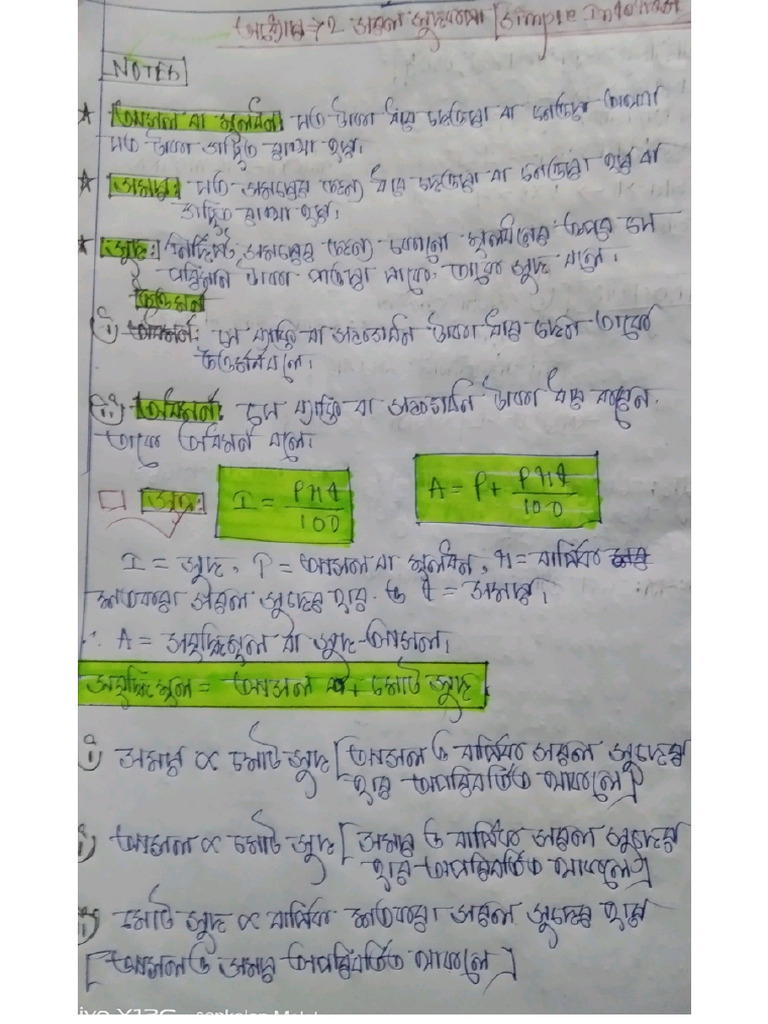 অধ্যায় → 2 সরল সুদকষা [Simple Interest
NOTES
★ আসল বা মূলধন: যত টাকা ধার দেওয়া বা নেওয়া অথবা
যত টাকা জমিত রাখা হয়।
★ সময়: যত সময়ের জন্য ধার দেওয়া বা নেওয়া হয় বা
জমিত রাখা হয়।
★ সুদ: নির্দিষ্ট সময়ের জন্য কোনো মূলধনের উপরে যে
পরিমান টাকা পাওয়া যাবে, তাকে সুদ বলে।
উত্তমর্ন
(i) অধমর্ন: যে ব্যক্তি বা মহাজন টাকা ধার দেন তাকে
উত্তমর্ন বলে।
(ii) অধমর্ন: যে ব্যক্তি বা টাকা ধার করেন,
তাকে অধমর্ন বলে।
সূত্র: I = Prt/100 A = P + Prt/100
I = সুদ, P = আসল বা মূলধন, r = বার্ষিক
শতকরা সরল সুদের হার ও t = সময়।
∴ A = সবৃদ্ধিমূল বা সুদ-আসল।
সবৃদ্ধিমূল = আসল + মোট সুদ
i) সময় ∝ মোট সুদ [আসল ও বার্ষিক সরল সুদের
হার অপরিবর্তিত থাকলে]
ii) আসল ∝ মোট সুদ [সময় ও বার্ষিক সরল সুদের
হার অপরিবর্তিত থাকলে]
iii) মোট সুদ ∝ বার্ষিক শতকরা সরল সুদের হার
[আসল ও সময় অপরিবর্তিত থাকলে]